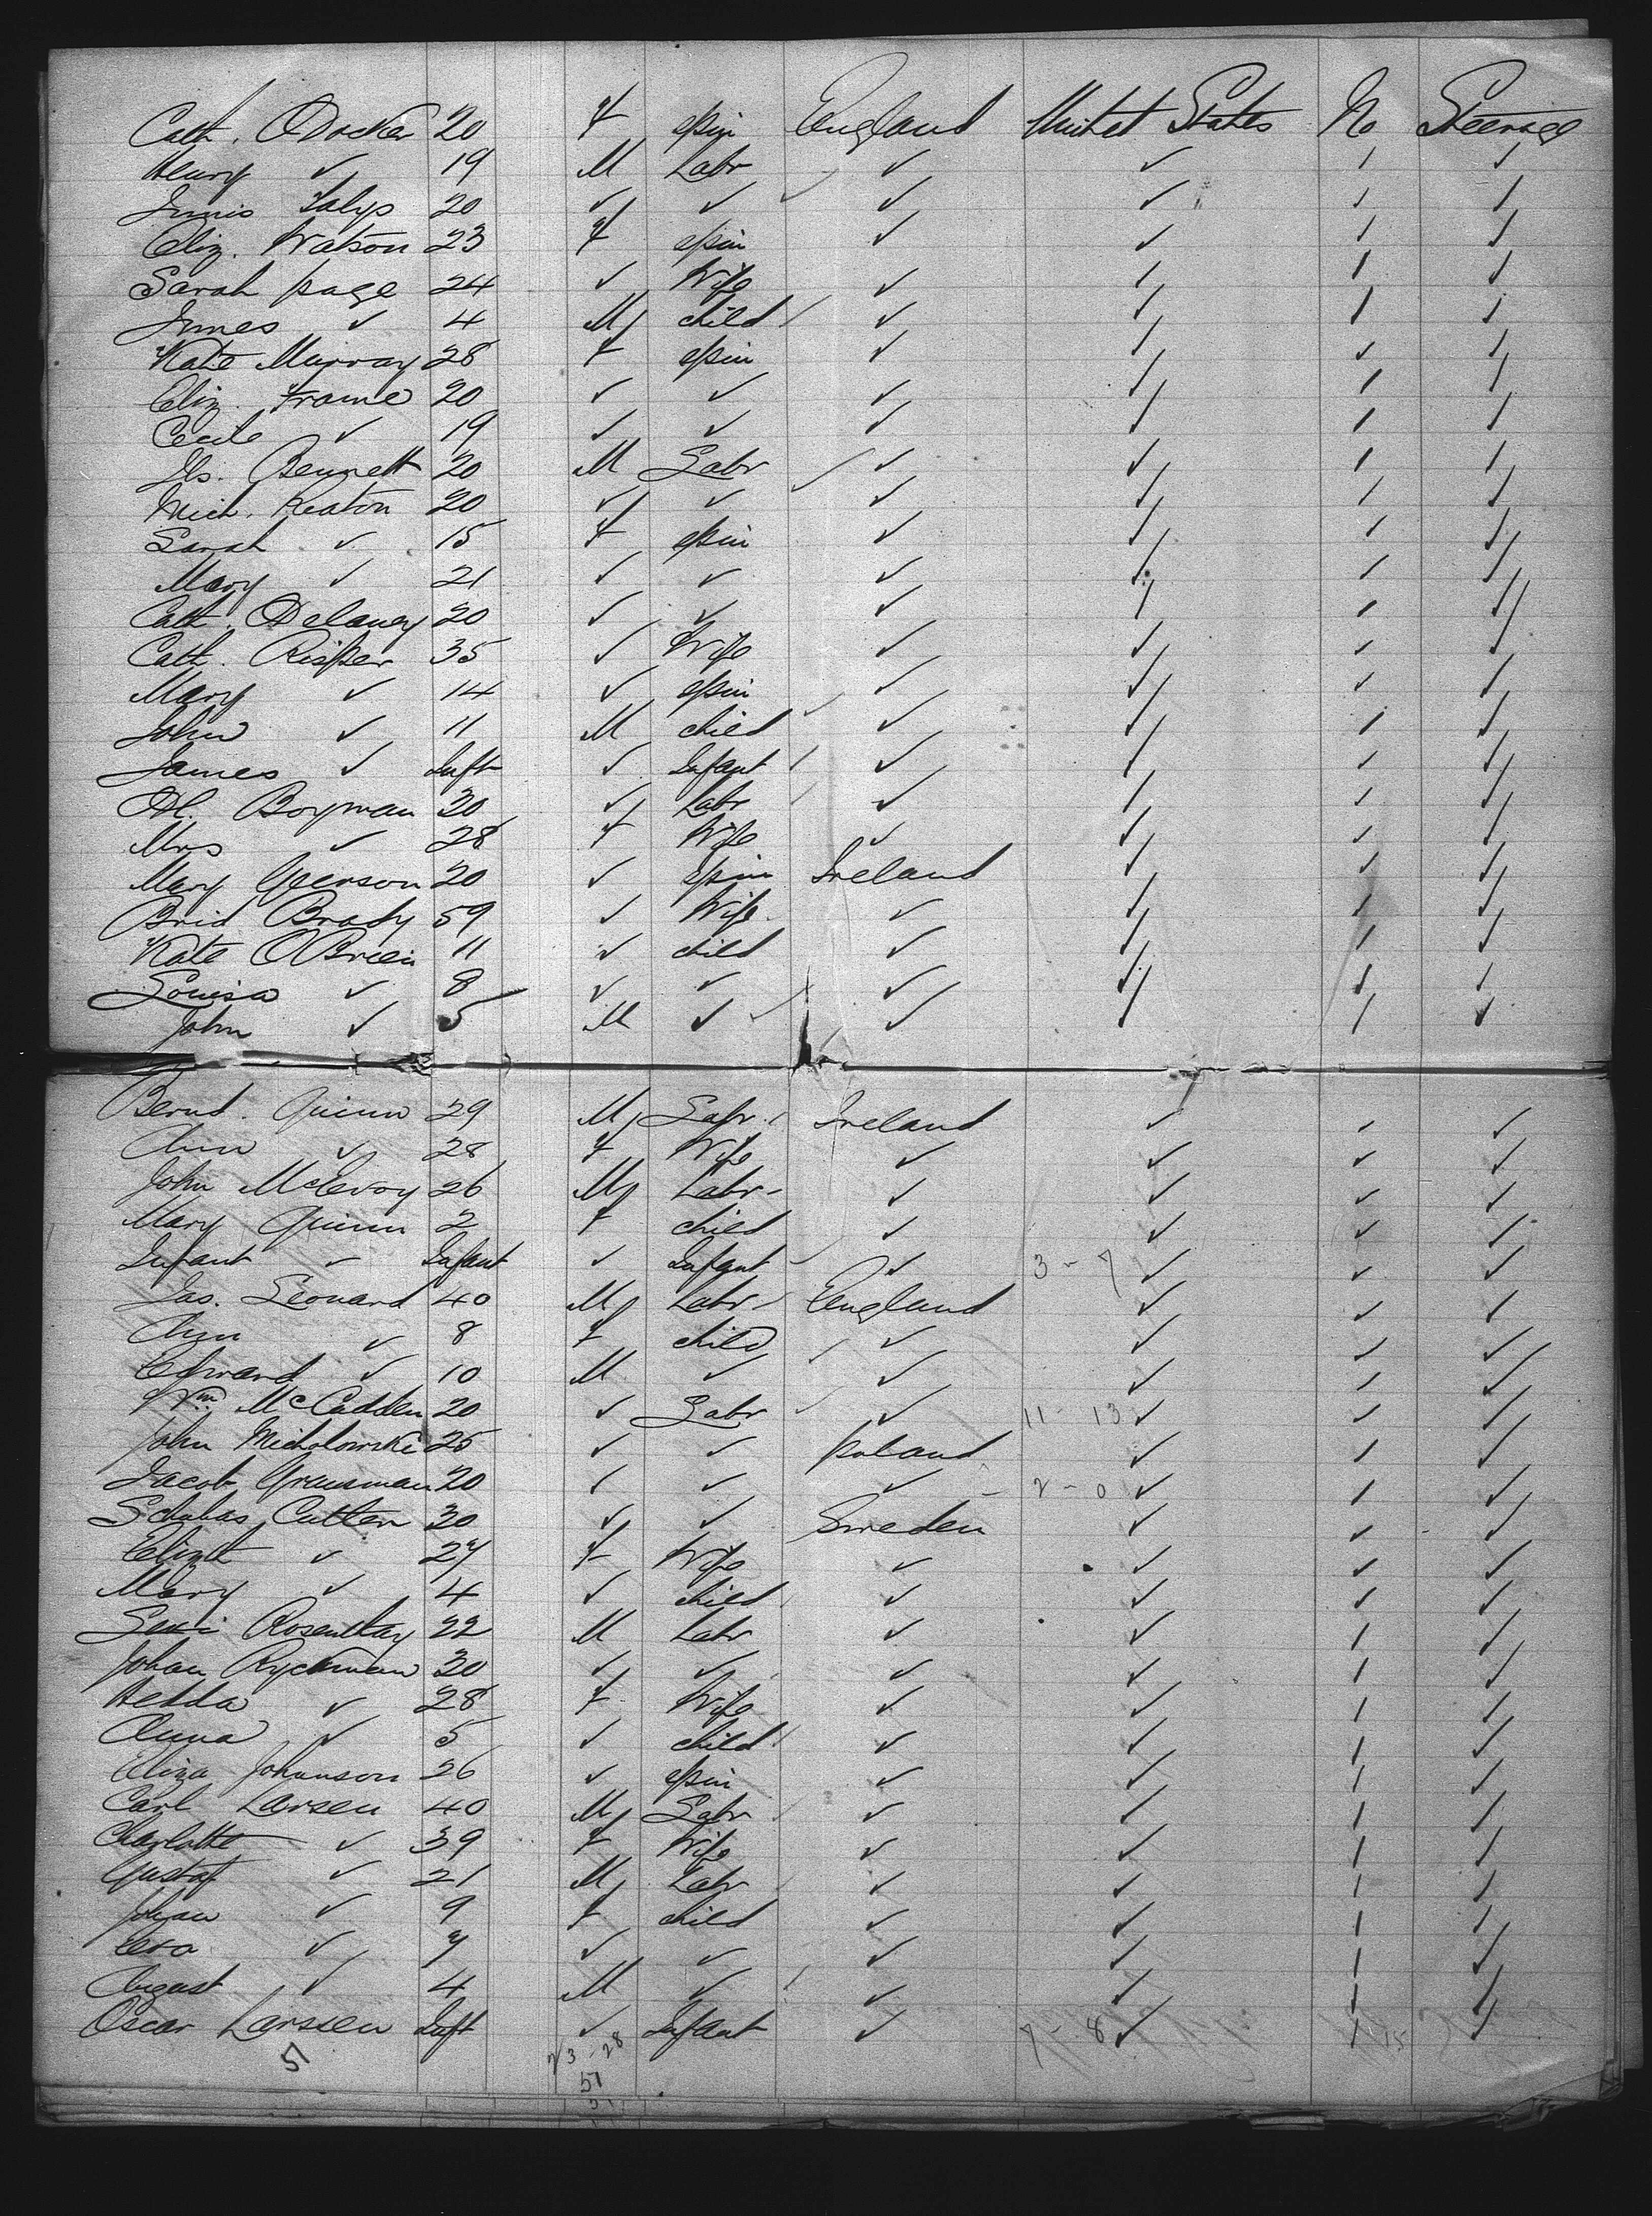 Cath. O'Docker 20 F spin England United States No Steerage
Henry ✓ 19 M Labr ✓ ✓ ✓ ✓
20 ✓ ✓ ✓ ✓ ✓ ✓
Eliz. Watson 23 F spin ✓ ✓ ✓ ✓
Sarah page 24 ✓ Wife ✓ ✓ ✓ ✓
James ✓ 4 M child ✓ ✓ ✓ ✓
Kate Murray 28 F spin ✓ ✓ ✓ ✓
Eliz. Frame 20 ✓ ✓ ✓ ✓ ✓ ✓
Cecile ✓ 19 ✓ ✓ ✓ ✓ ✓ ✓
Bennett 20 M Labr ✓ ✓ ✓ ✓
Mich. Keaton 20 ✓ ✓ ✓ ✓ ✓ ✓
Sarah ✓ 15 F spin ✓ ✓ ✓ ✓
Mary ✓ 21 ✓ ✓ ✓ ✓ ✓ ✓
Cath. Delaney 20 ✓ ✓ ✓ ✓ ✓ ✓
Cath. Risper 35 ✓ Wife ✓ ✓ ✓ ✓
Mary ✓ 14 ✓ spin ✓ ✓ ✓ ✓
John ✓ 11 M child ✓ ✓ ✓ ✓
James ✓ Inft ✓ Infant ✓ ✓ ✓ ✓
Boyman 30 ✓ Labr ✓ ✓ ✓ ✓
Mrs ✓ 28 F Wife ✓ ✓ ✓ ✓
Mary Geerson 20 ✓ Spin Ireland ✓ ✓ ✓
Brid Brady 59 ✓ Wife ✓ ✓ ✓ ✓
Kate OBrien 11 ✓ child ✓ ✓ ✓ ✓
Louisa ✓ 8 ✓ ✓ ✓ ✓ ✓ ✓
John ✓ 5 M ✓ ✓ ✓ ✓ ✓
Bernd. Quinn 29 M Labr Ireland ✓ ✓ ✓
Ann ✓ 28 F Wife ✓ ✓ ✓ ✓
John McEvoy 26 M Labr ✓ ✓ ✓ ✓
Mary Quinn 2 F child ✓ ✓ ✓ ✓
Infant ✓ Infant ✓ Infant ✓ 3 - 7 ✓ ✓ ✓
Jas. Leonard 40 M Labr England ✓ ✓ ✓
Ann ✓ 8 F child ✓ ✓ ✓ ✓
Edward ✓ 10 M ✓ ✓ ✓ ✓ ✓
Wm McCadden 20 ✓ Labr ✓ 11 - 13 ✓ ✓ ✓
John Micholowski 25 ✓ ✓ poland ✓ ✓ ✓
Jacob Grausman 20 ✓ ✓ ✓ - 2 - 0 ✓ ✓ ✓
Schubas Cutler 30 ✓ ✓ Sweden ✓ ✓ ✓
Elizt ✓ 27 F Wife ✓ ✓ ✓ ✓
Mary ✓ 4 ✓ child ✓ ✓ ✓ ✓
Rosenthay 22 M Labr ✓ ✓ ✓ ✓
Johan Ryckman 30 ✓ ✓ ✓ ✓ ✓ ✓
Hedda ✓ 28 F Wife ✓ ✓ ✓ ✓
Anna ✓ 5 ✓ child ✓ ✓ ✓ ✓
Eliza Johnnson 26 ✓ spin ✓ ✓ ✓ ✓
Carl Larsen 40 M Labr ✓ ✓ ✓ ✓
Charlotte ✓ 39 F Wife ✓ ✓ ✓ ✓
Gustaf ✓ 21 M Labr ✓ ✓ ✓ ✓
Johan ✓ 9 F child ✓ ✓ ✓ ✓
Eva ✓ 7 ✓ ✓ ✓ ✓ ✓ ✓
August ✓ 4 M ✓ ✓ ✓ ✓ ✓
Oscar Larssen Inft ✓ Infant ✓ 7 - 8 ✓ ✓ 15 ✓
51 23 - 28
51